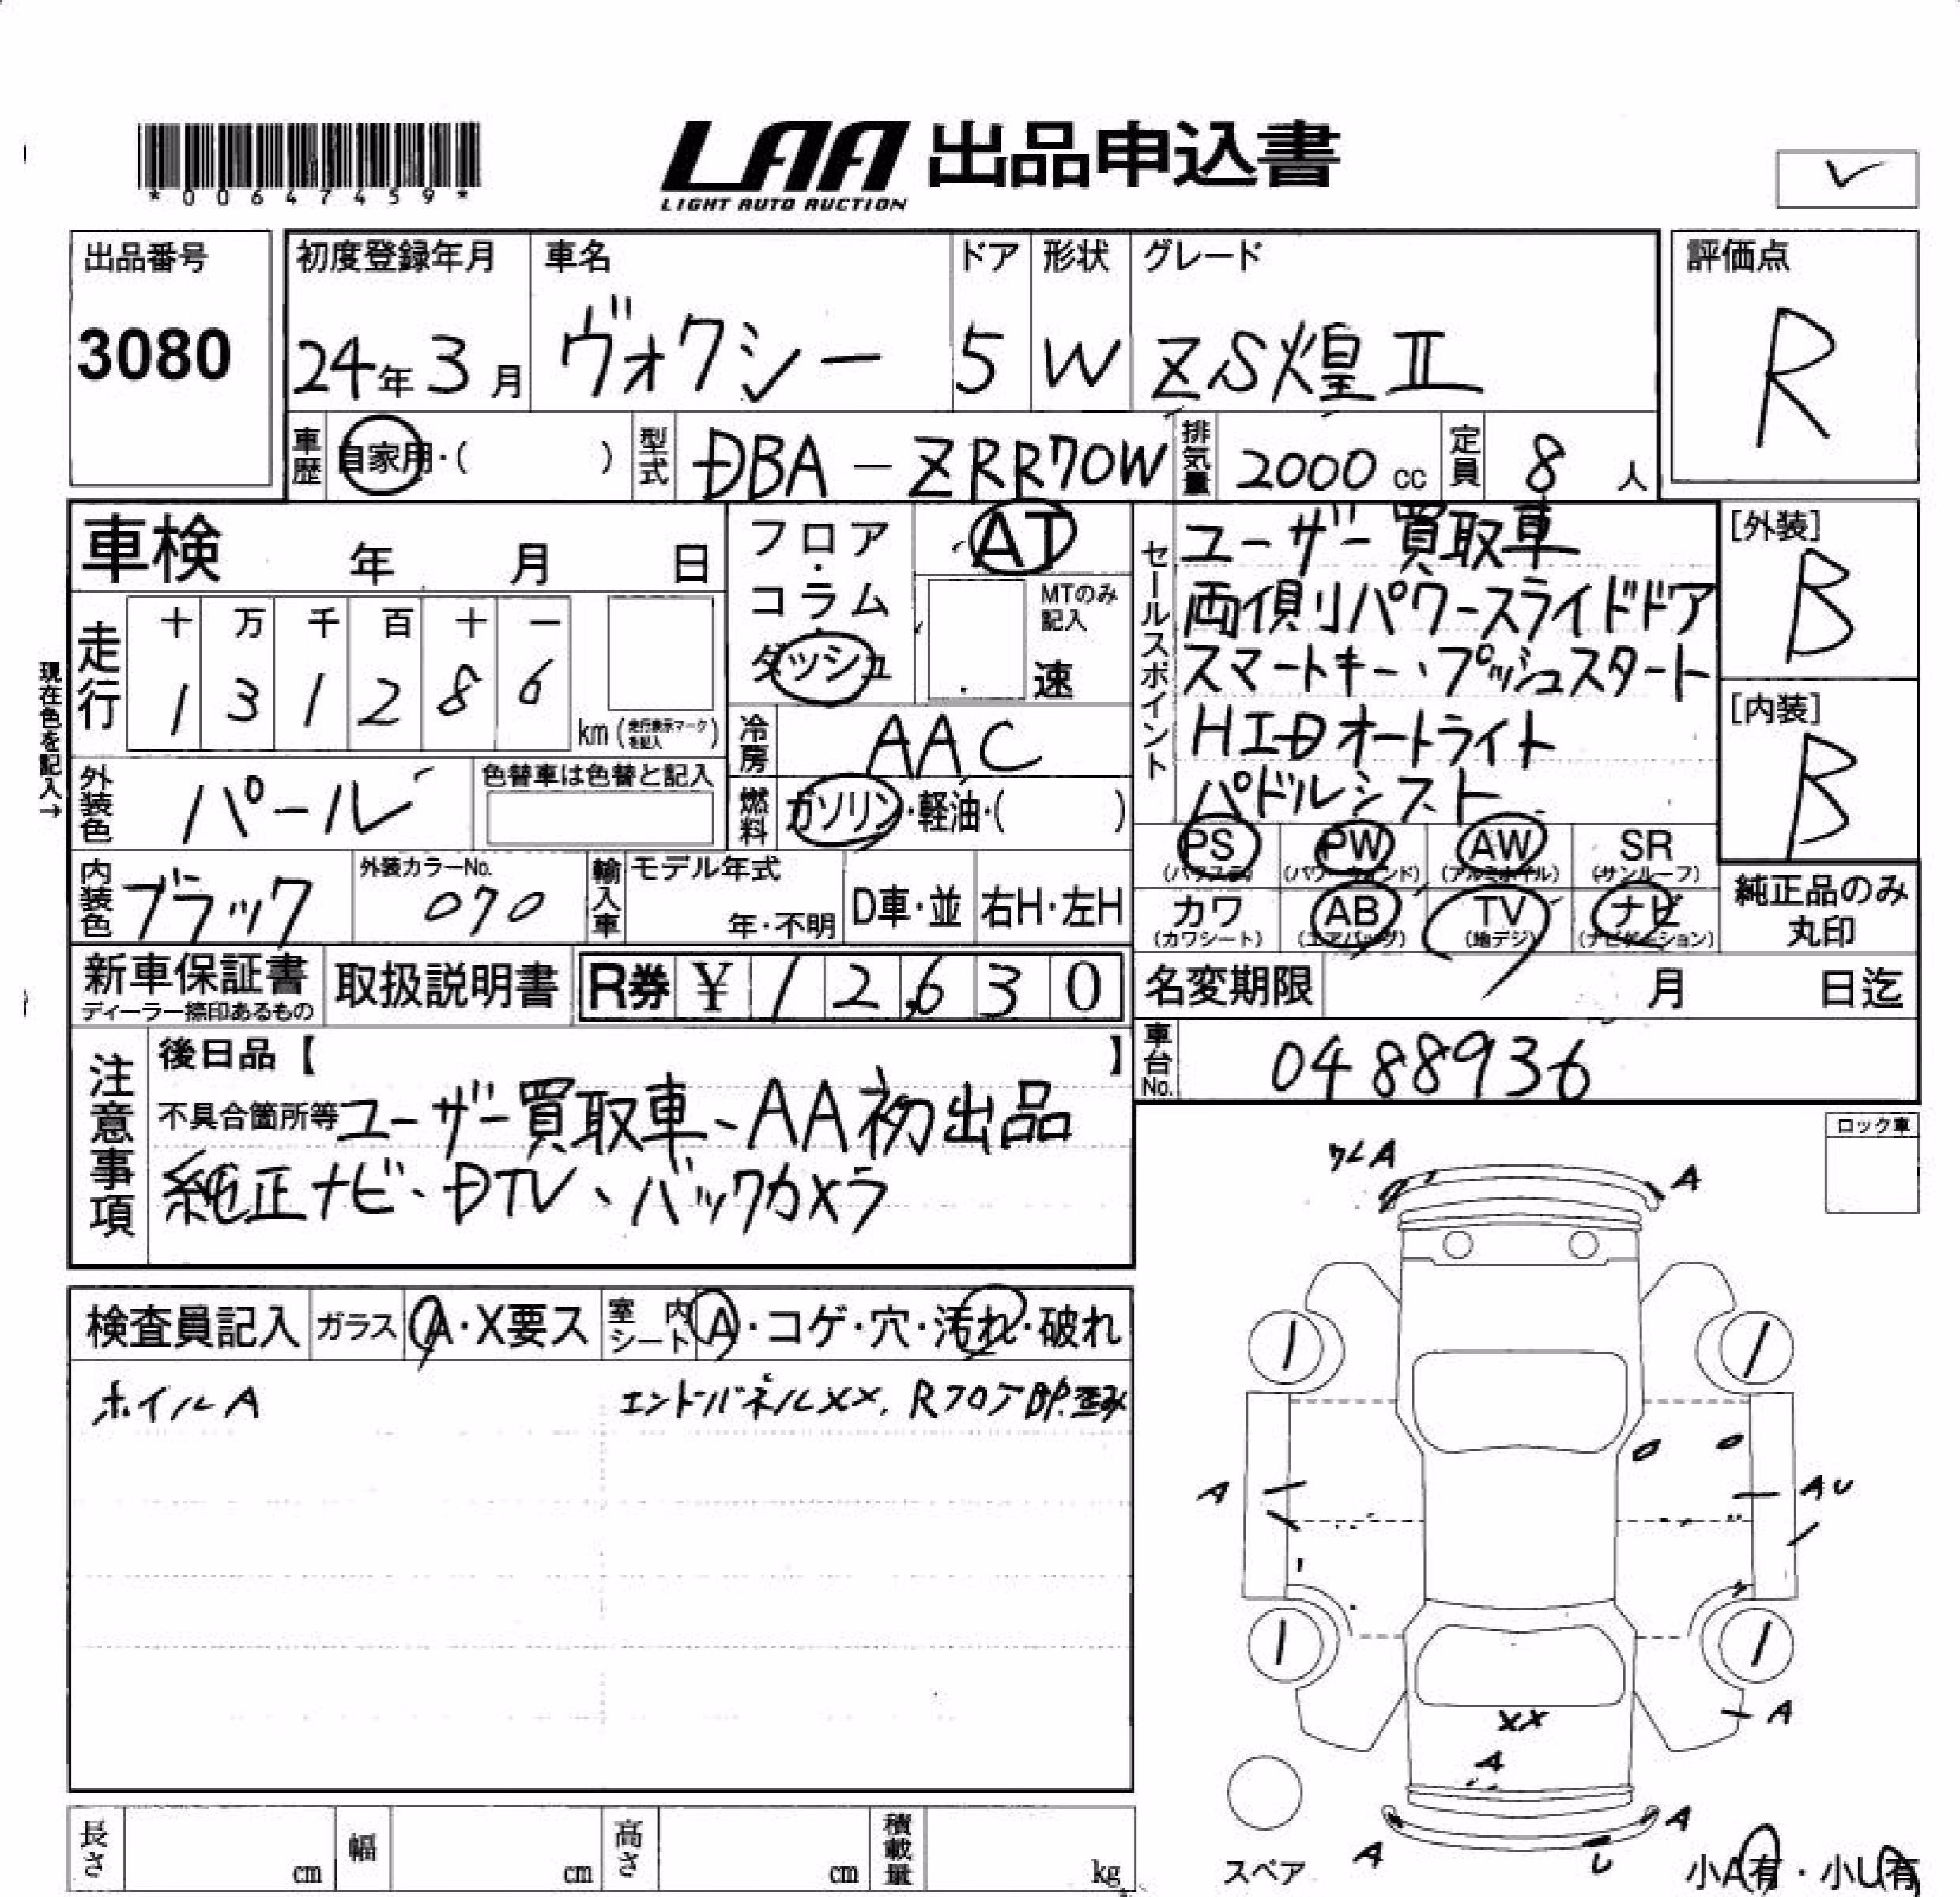 *00647459*
LAA 出品申込書
LIGHT AUTO AUCTION
✓
出品番号
3080
初度登録年月
24年3月
車名
ヴォクシー
ドア
5
形状
W
グレード
ZS煌Ⅱ
評価点
R
車歴 自家用・( )
型式 DBA-ZRR70W
排気量 2000 cc
定員 8 人
車検 年 月 日
現在色を記入→
走行
十 万 千 百 十 一
1 3 1 2 8 6
km(走行表示マークを記入)
フロア・コラム・ダッシュ
AT
MTのみ記入
速
冷房 AAC
燃料 ガソリン・軽油・( )
外装色 パール
色替車は色替と記入
内装色 ブラック
外装カラーNo.
070
輸入車
モデル年式
年・不明
D車・並
右H・左H
セールスポイント
ユーザー買取車
両側パワースライドドア
スマートキー、プッシュスタート
HID オートライト
パドルシフト
[外装]
B
[内装]
B
PS (パワステ)
PW (パワーウィンド)
AW (アルミホイル)
SR (サンルーフ)
カワ (カワシート)
AB (エアバッグ)
TV (地デジ)
ナビ (ナビゲーション)
純正品のみ
丸印
新車保証書
ディーラー捺印あるもの
取扱説明書
R券 ¥ 12630
名変期限 月 日迄
車台No. 0488936
注意事項
後日品【 】
不具合箇所等 ユーザー買取車、AA初出品
純正ナビ、DTV、バックカメラ
ロック車
検査員記入
ガラス A・X要ス
室内シート A・コゲ・穴・汚れ・破れ
ホイルA
エンドパネルXX, Rフロア
A
A
A
AU
A
XX
A
A
A
U
スペア
小A有・小U有
長さ cm
幅 cm
高さ cm
積載量 kg